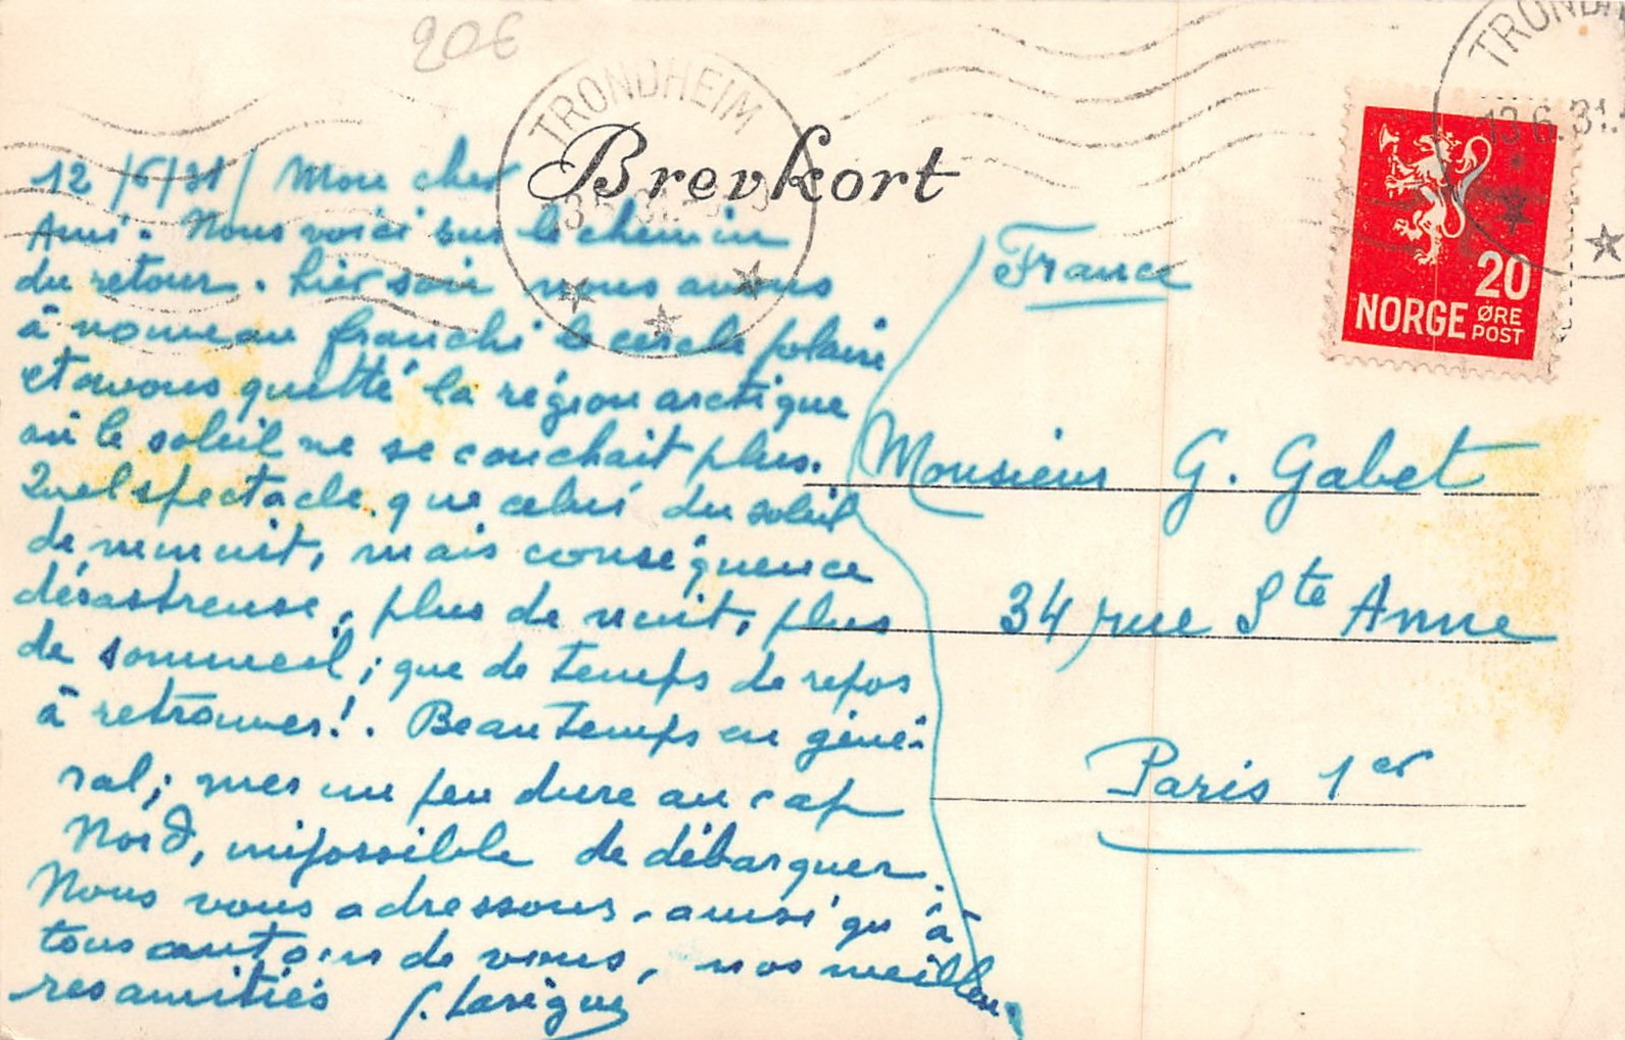 20€
TRONDHEIM
TRONDHEIM
13.6.31.
Brevkort
20
NORGE ØRE
POST
12/6/31/ Mon cher
Ami. Nous voici sur le chemin
du retour. hier soir nous avons
à nouveau franchi le cercle polaire
et avons quitté la région arctique
où le soleil ne se couchait plus.
Quel spectacle que celui du soleil
de minuit, mais conséquence
désastreuse, plus de nuit, plus
de sommeil; que de temps de repos
à retrouver!. Beau temps en géné-
ral; mer un peu dure au cap
Nord, impossible de débarquer.
Nous vous adressons, ainsi qu'à
tous autour de vous, nos meilleu-
res amitiés
France
Monsieur G. Gabet
34 rue Ste Anne
Paris 1er